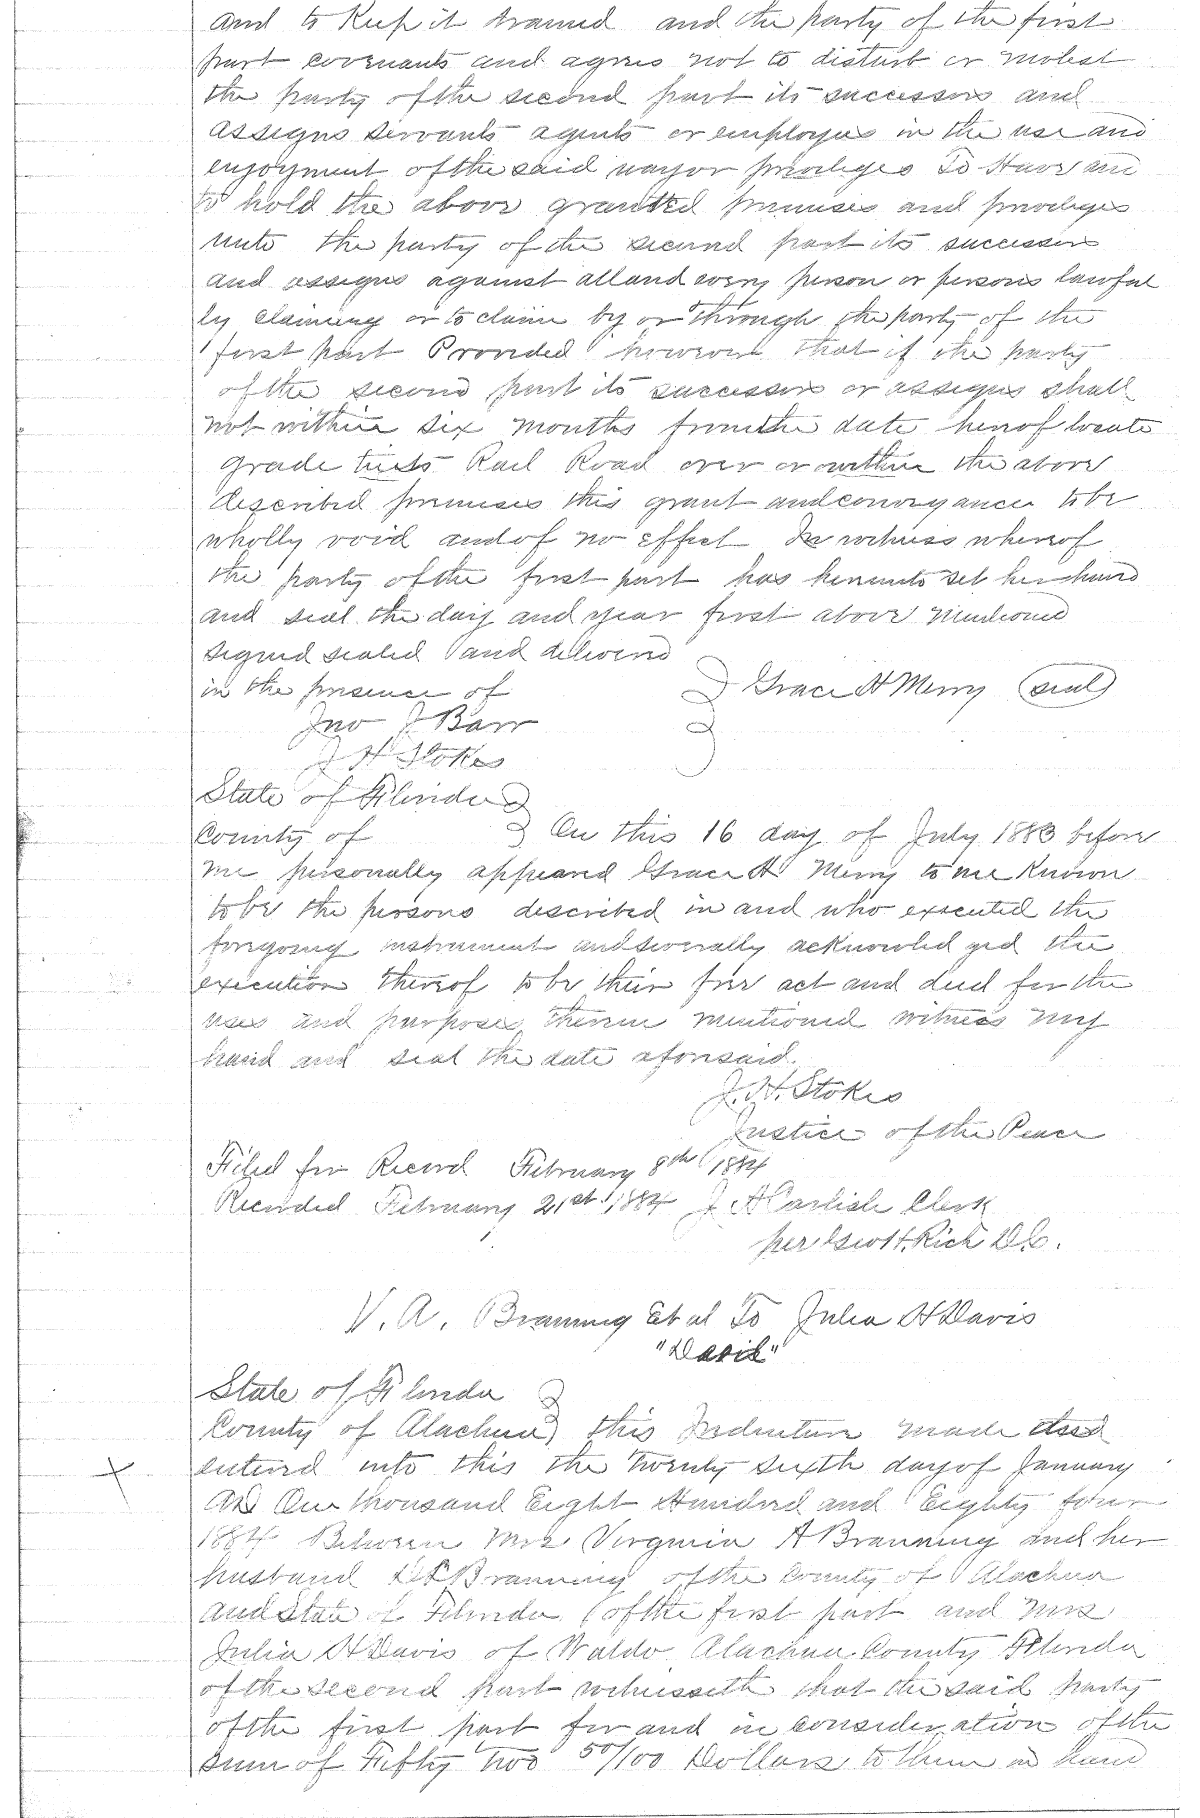 and to Keep it drained and the party of the first
part covenants and agrees not to disturb or molest
the party of the second part its successors and
assigns servants agents or employees in the use and
enjoyment of the said way or privileges To Have and
to hold the above granted premises and privileges
unto the party of the second part its successors
and assigns against all and every person or persons lawful
ly claiming or to claim by or through the party of the
first part Provided however that if the party
of the second part its successors or assigns shall
not within six months from the date hereof locate
grade Rail Road over or within the above
described premises this grant and conveyance to be
wholly void and of no effect In witness whereof
the party of the first part has hereunto set her hand
and seal the day and year first above mentioned
signed sealed and delivered
in the presence of Grace H Merry (seal)
Jno J Barr
J H Stokes
State of Florida
County of On this 16 day of July 1883 before
me personally appeared Grace H Merry to me Known
to be the persons described in and who executed the
foregoing instrument and severally acknowledged the
execution thereof to be their free act and deed for the
uses and purposes therein mentioned witness my
hand and seal the date aforesaid.
J. H. Stokes
Justice of the Peace
Filed for Record February 8th 1884
Recorded February 21st 1884 J A Carlisle Clerk
per Geo H. Rich D.C.
V. A. Branning Et al To Julia H Davis
"Deed"
State of Florida
County of Alachua this Indenture made and
entered into this the twenty sixth day of January
AD One thousand Eight Hundred and Eighty four
1884 Between Mrs Virginia A Branning and her
husband Branning of the County of Alachua
and State of Florida of the first part and Mrs
Julia H Davis of Waldo Alachua County Florida
of the second part witnesseth that the said party
of the first part for and in consideration of the
sum of Fifty two 50/100 Dollars to them in hand